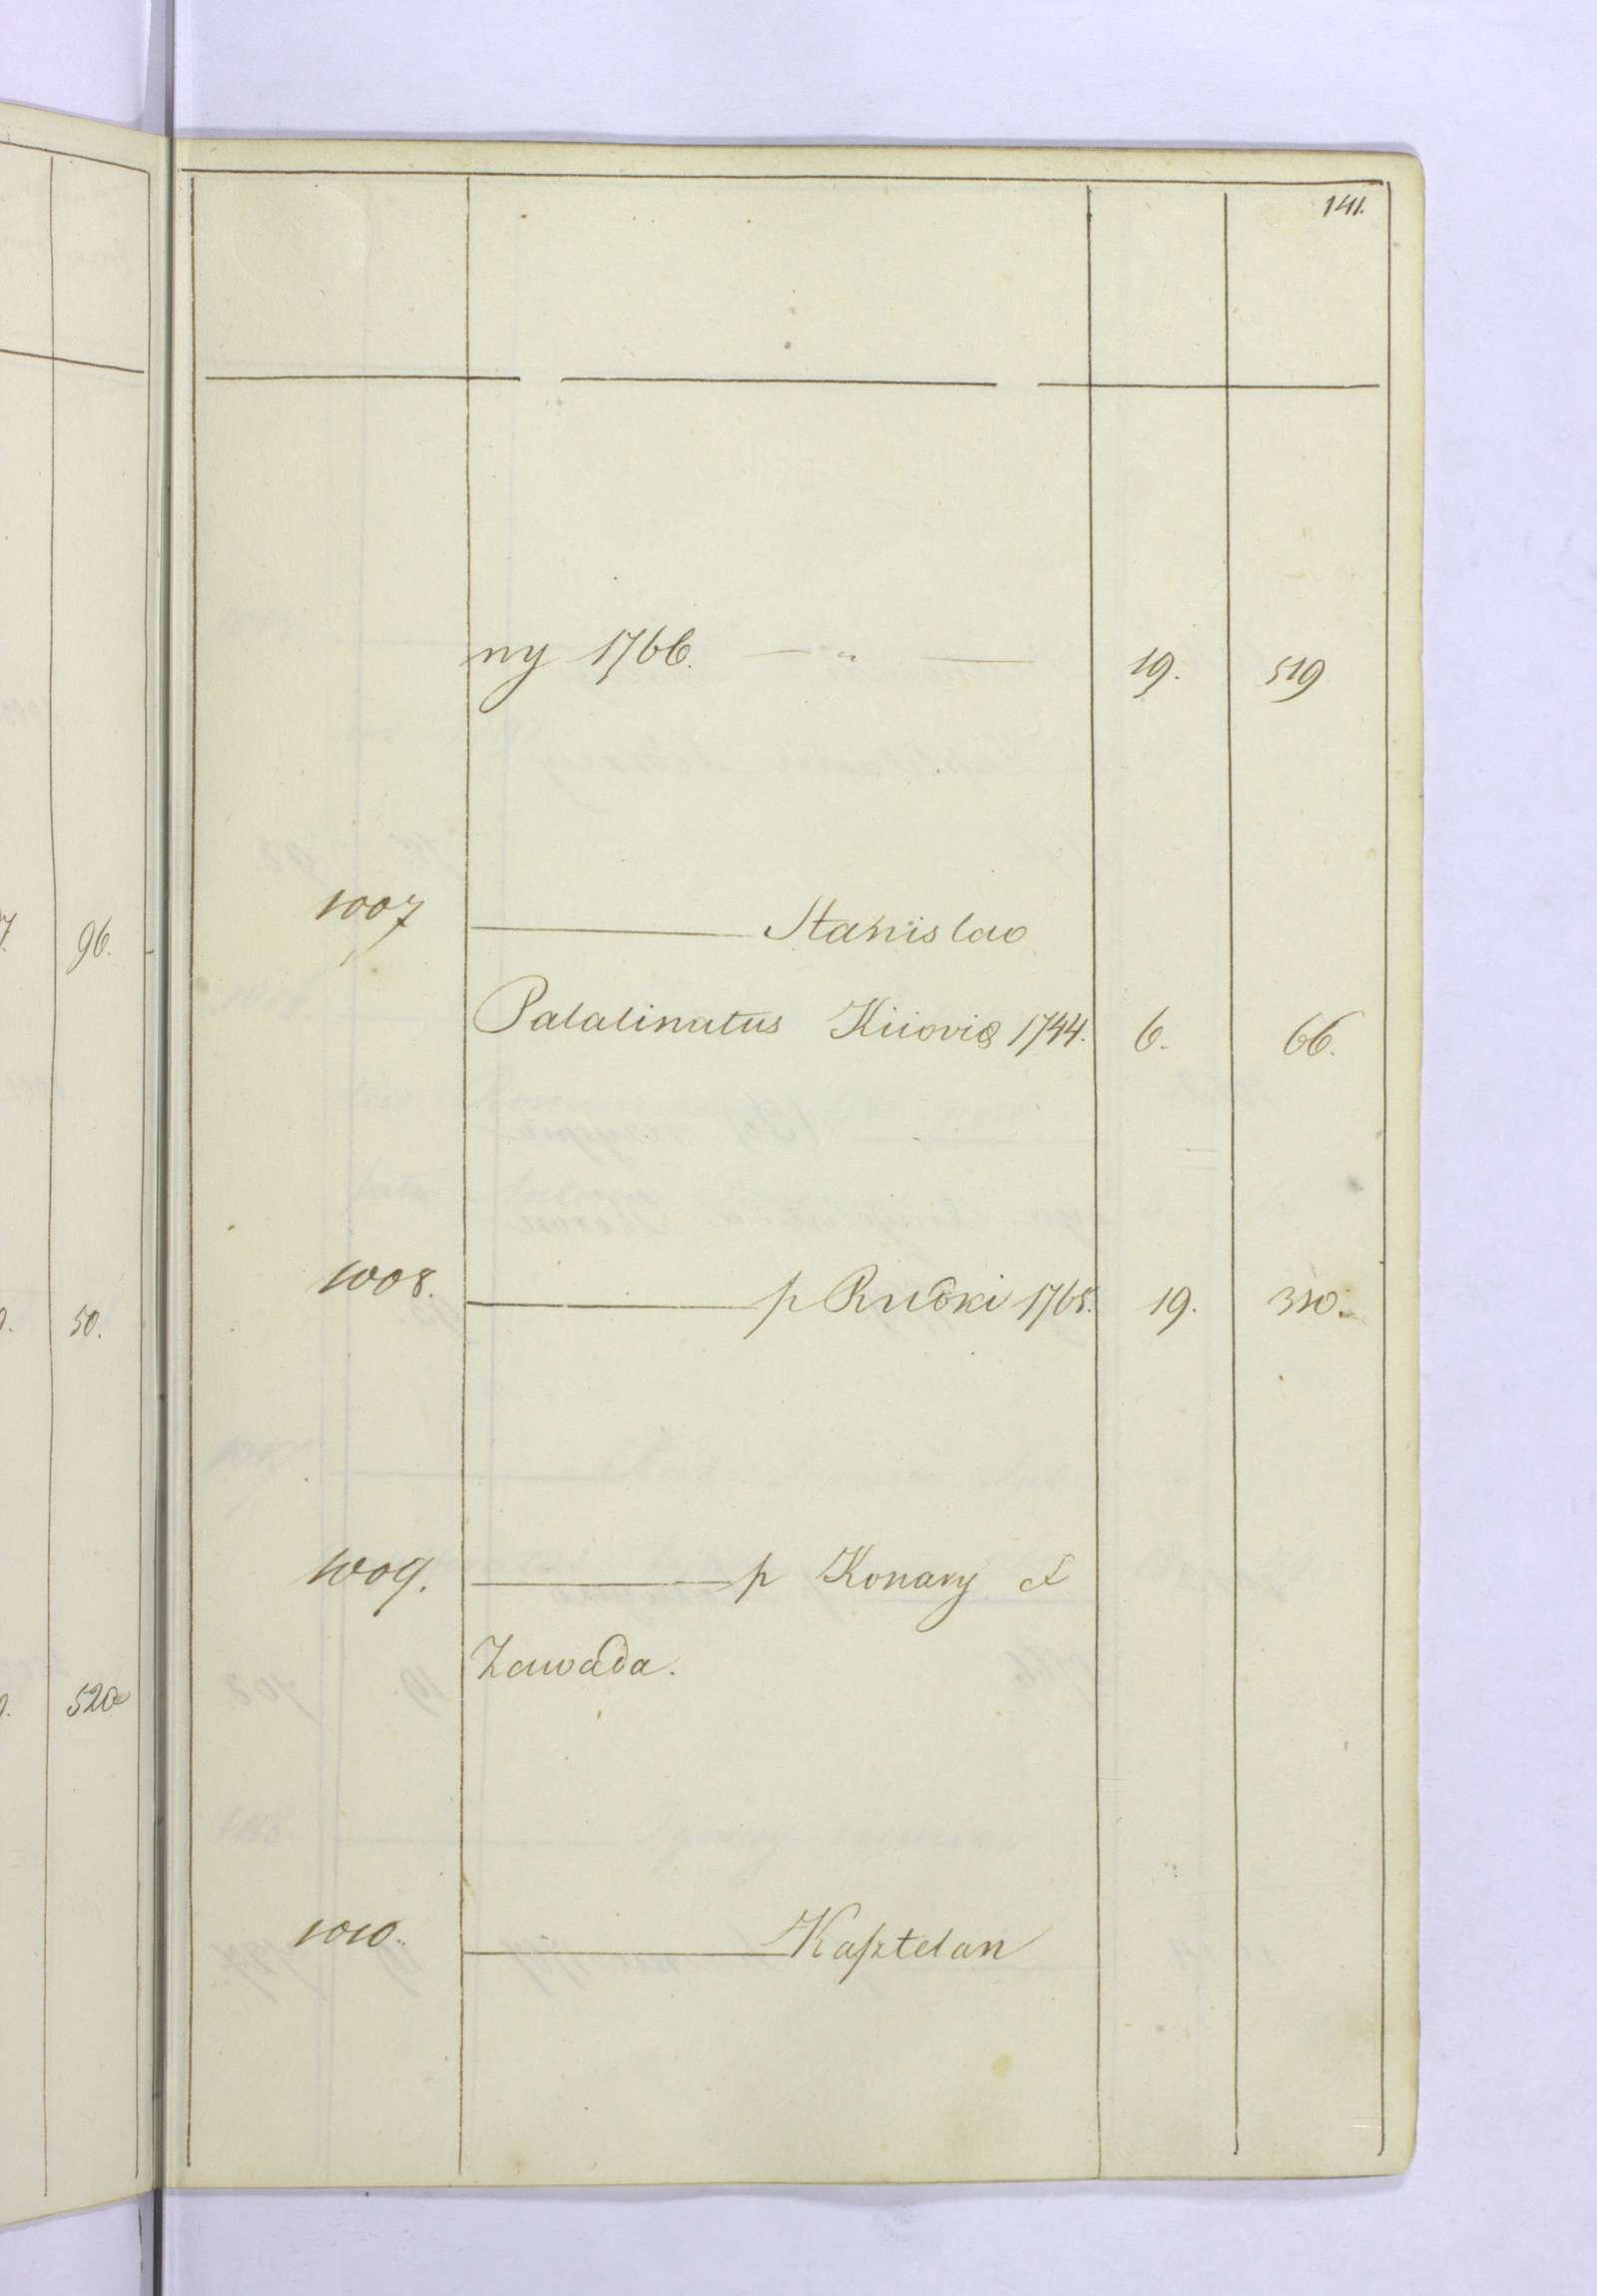 141.
ny 1766. — " — 19. 519
1007 — Stanislao
Palatinatus Kiioviæ 1744. 6. 66.
1008. — p Rudki 1765. 19. 310.
1009. — p Konary et
Zawada.
1010. — Kasztelan
96.
50.
520